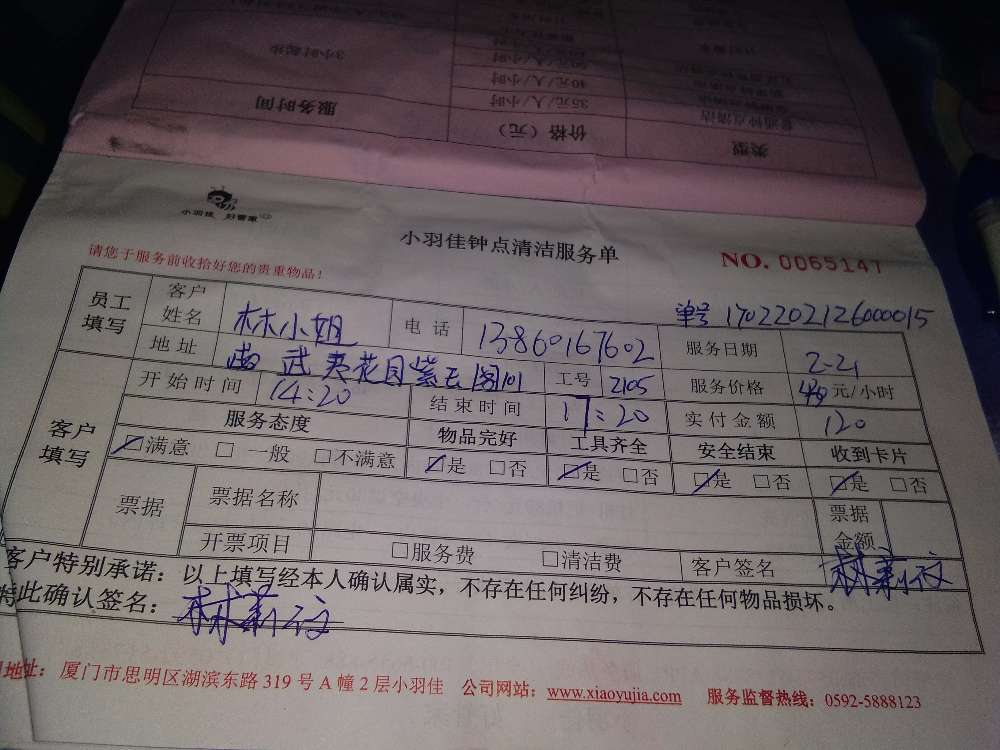 3小时起步
40元/人/小时
35元/人/小时
服务时间
价格（元）
类型
小羽佳 好管家
小羽佳钟点清洁服务单
NO. 0065147
请您于服务前收拾好您的贵重物品！
单号 1702202126000015
员工填写
客户姓名 林小姐 电话 13860167602 服务日期 2-21
地址 武夷花园紫云阁101 工号 2105 服务价格 40 元/小时
开始时间 14:20 结束时间 17:20 实付金额 120
客户填写
服务态度 物品完好 工具齐全 安全结束 收到卡片
☑满意 □一般 □不满意 ☑是 □否 ☑是 □否 ☑是 □否 ☑是 □否
票据 票据名称 票据金额
开票项目 □服务费 □清洁费 客户签名
客户特别承诺：以上填写经本人确认属实，不存在任何纠纷，不存在任何物品损坏。
特此确认签名：
地址：厦门市思明区湖滨东路 319 号 A 幢 2 层小羽佳 公司网站：www.xiaoyujia.com 服务监督热线：0592-5888123